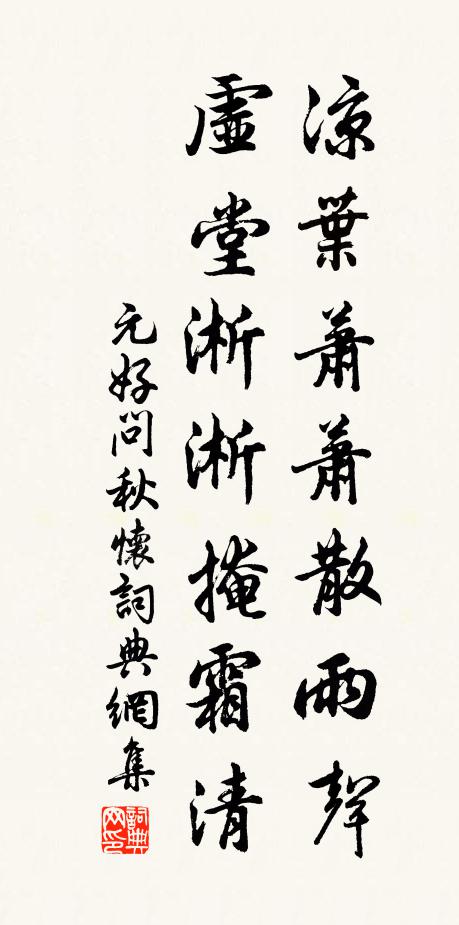 涼葉蕭蕭散雨聲
虛堂淅淅掩霜清
元好問秋懷詞典網集
詞典網印